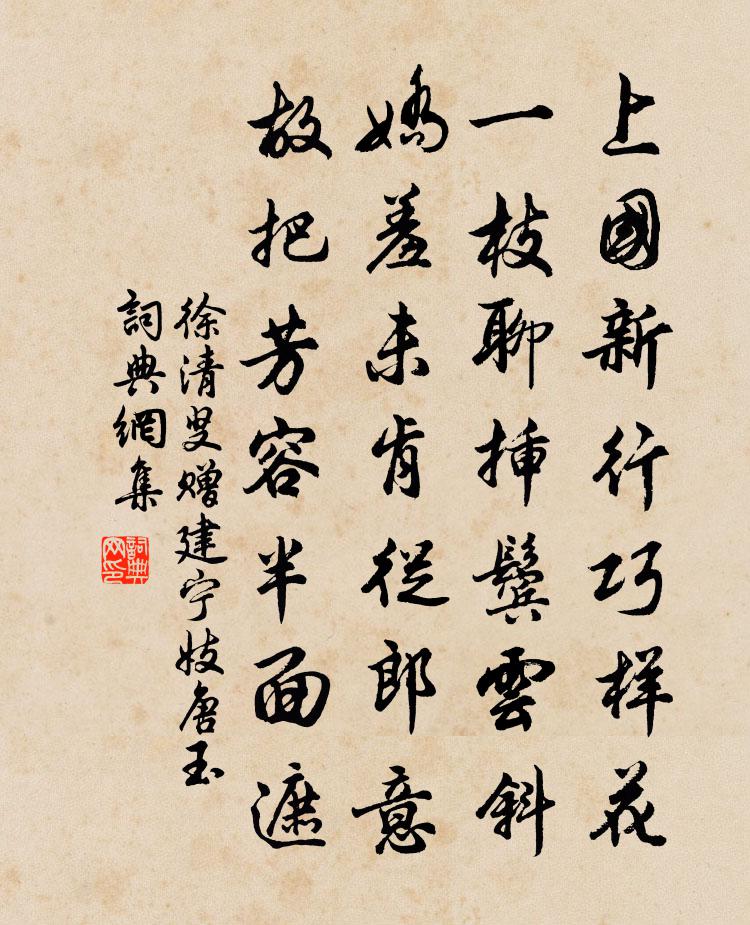 上國新行巧样花
一枝聊插鬓雲斜
嬌羞未肯從郎意
故把芳容半面遮
徐清叟赠建宁妓唐玉
詞典網集
詞典网印